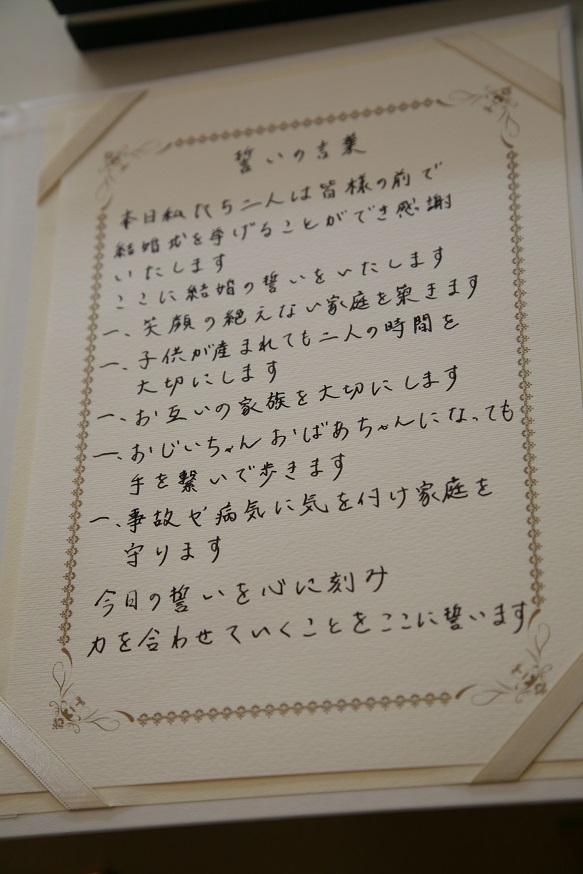 誓いの言葉
本日私たち二人は皆様の前で
結婚式を挙げることができ感謝
いたします
ここに結婚の誓いをいたします
一、笑顔の絶えない家庭を築きます
一、子供が産まれても二人の時間を
大切にします
一、お互いの家族を大切にします
一、おじいちゃんおばあちゃんになっても
手を繋いで歩きます
一、事故や病気に気を付け家庭を
守ります
今日の誓いを心に刻み
力を合わせていくことをここに誓います